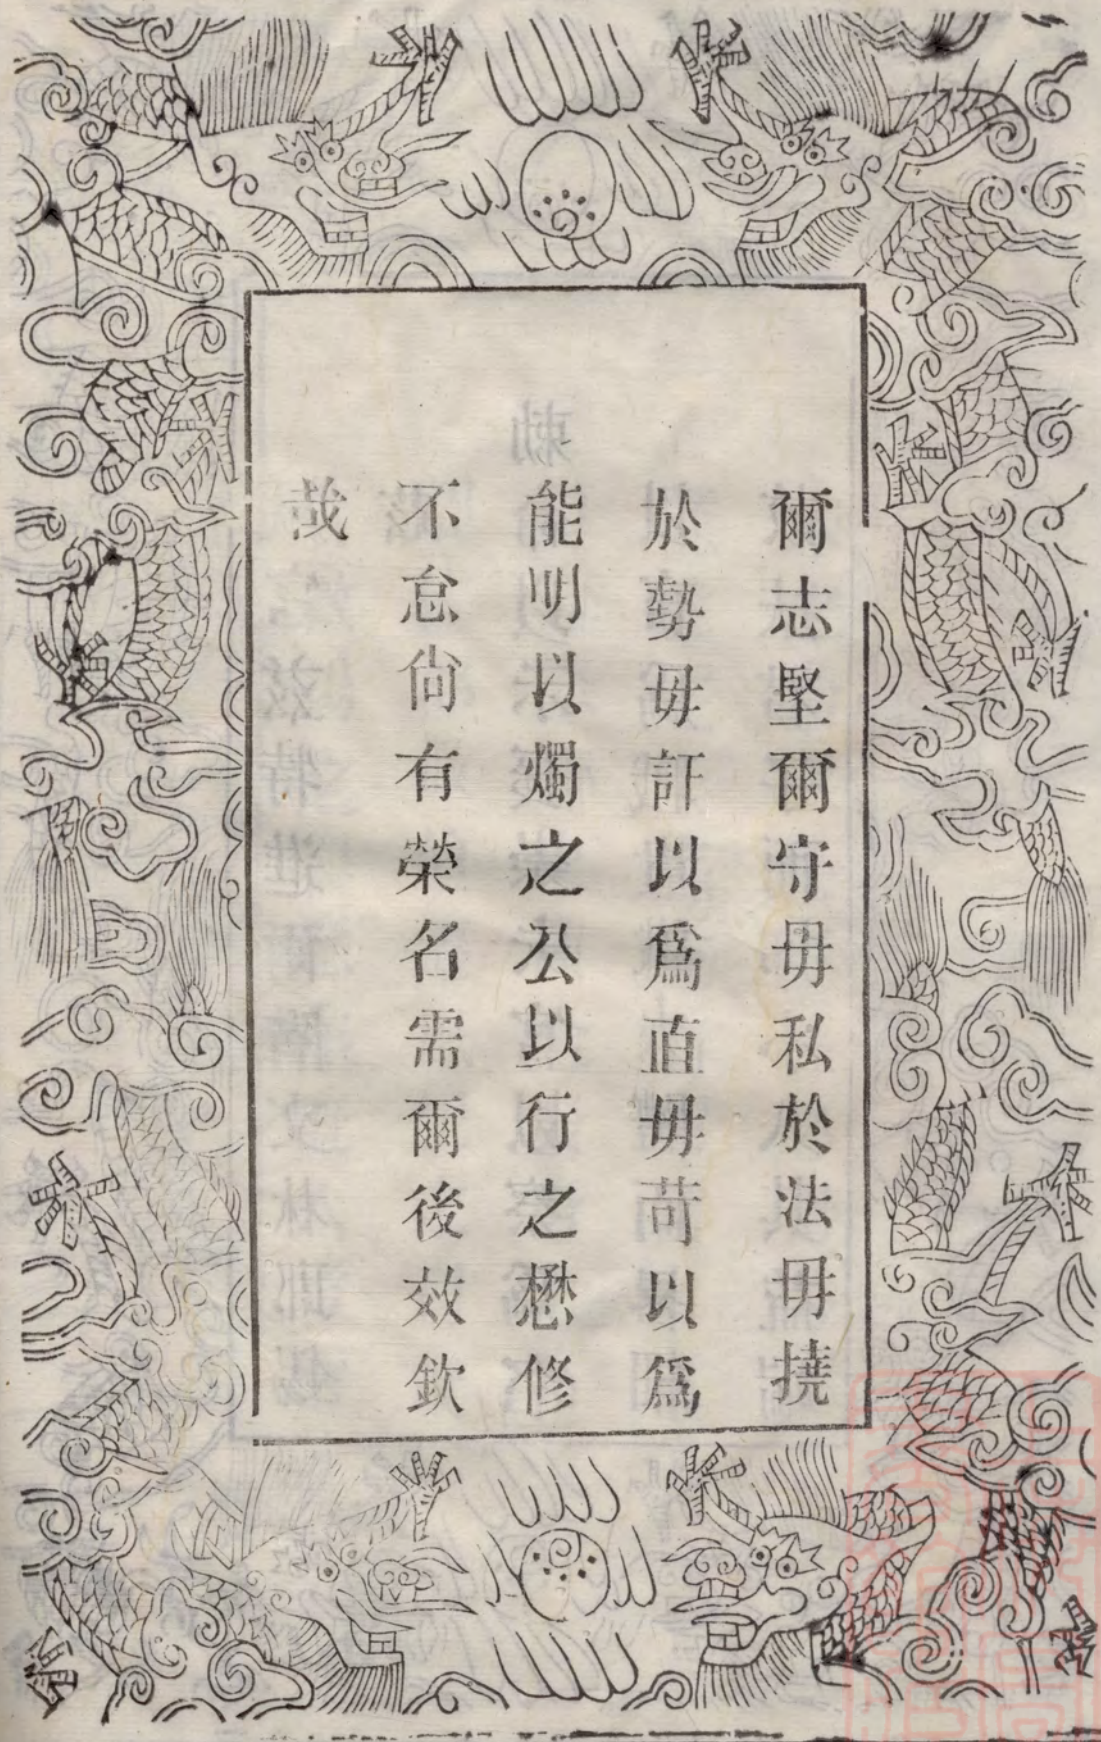 爾志堅爾守毋私於法毋撓
於勢毋訐以爲直毋苛以爲
能明以燭之公以行之懋修
不怠尙有榮名需爾後效欽
哉